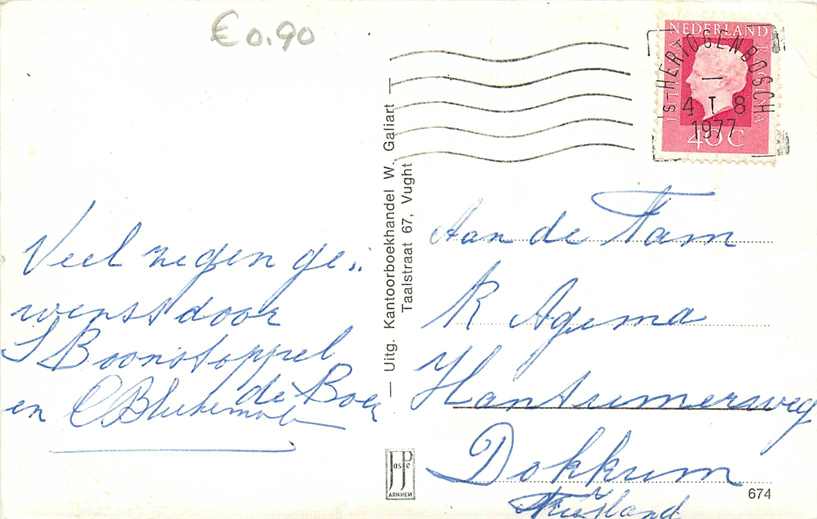 € 0.90
NEDERLAND
's-HERTOGENBOSCH
4 T 8
1977
40 C
Veel zegen ge..
wenst door
S Boonstoppel
de Boer
en
— Uitg. Kantoorboekhandel W. Galiart —
Taalstraat 67, Vught
Aan de Fam
R Agema
Hantumerweg
Dokkum
Friesland
JosPé
ARNHEM
674